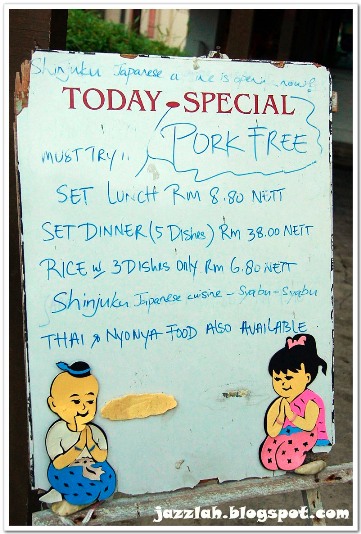 Shinjuku Japanese is open now!
TODAY • SPECIAL
PORK FREE
MUST TRY!!
SET LUNCH RM 8.80 NETT
SET DINNER (5 DISHES) RM 38.00 NETT
RICE w 3 DISHES ONLY RM 6.80 NETT
Shinjuku Japanese cuisine - Syabu - Syabu
THAI & NYONYA FOOD ALSO AVAILABLE
jazzlah.blogspot.com